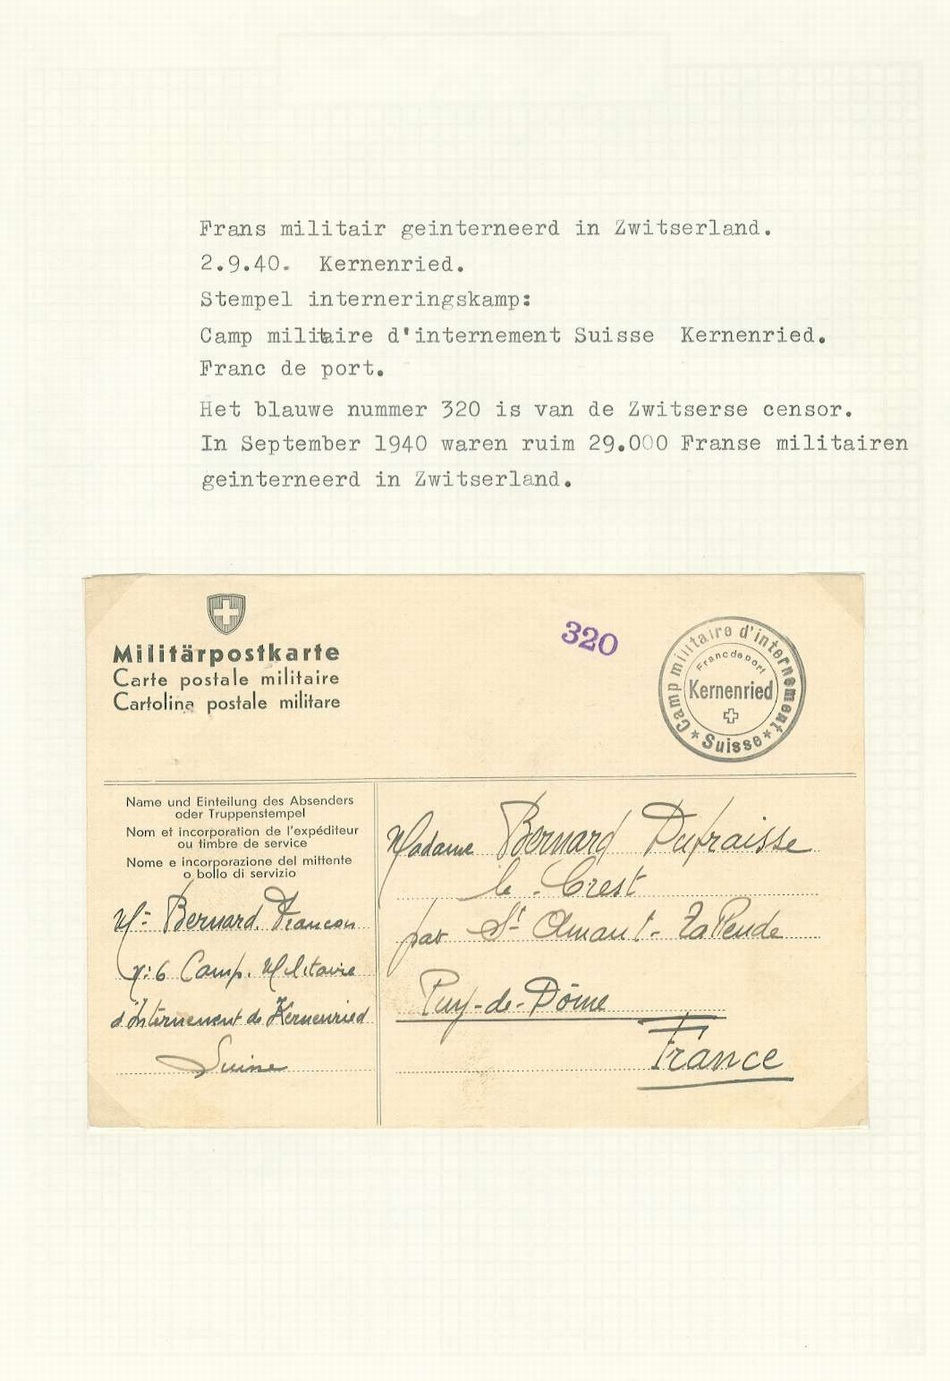 Frans militair geinterneerd in Zwitserland.
2.9.40.  Kernenried.
Stempel interneringskamp:
Camp militaire d'internement Suisse  Kernenried.
Franc de port.
Het blauwe nummer 320 is van de Zwitserse censor.
In September 1940 waren ruim 29.000 Franse militairen
geinterneerd in Zwitserland.
320
Camp militaire d'internement
Franc de port
Kernenried
* Suisse *
Militärpostkarte
Carte postale militaire
Cartolina postale militare
Name und Einteilung des Absenders
oder Truppenstempel
Nom et incorporation de l'expéditeur
ou timbre de service
Nome e incorporazione del mittente
o bollo di servizio
Mr Bernard
n: 6 Camp. Militaire
d'Internement de Kernenried
Suisse
Madame Bernard Dufraisse
le Crest
par St Amant-
Puy-de-Dôme
France